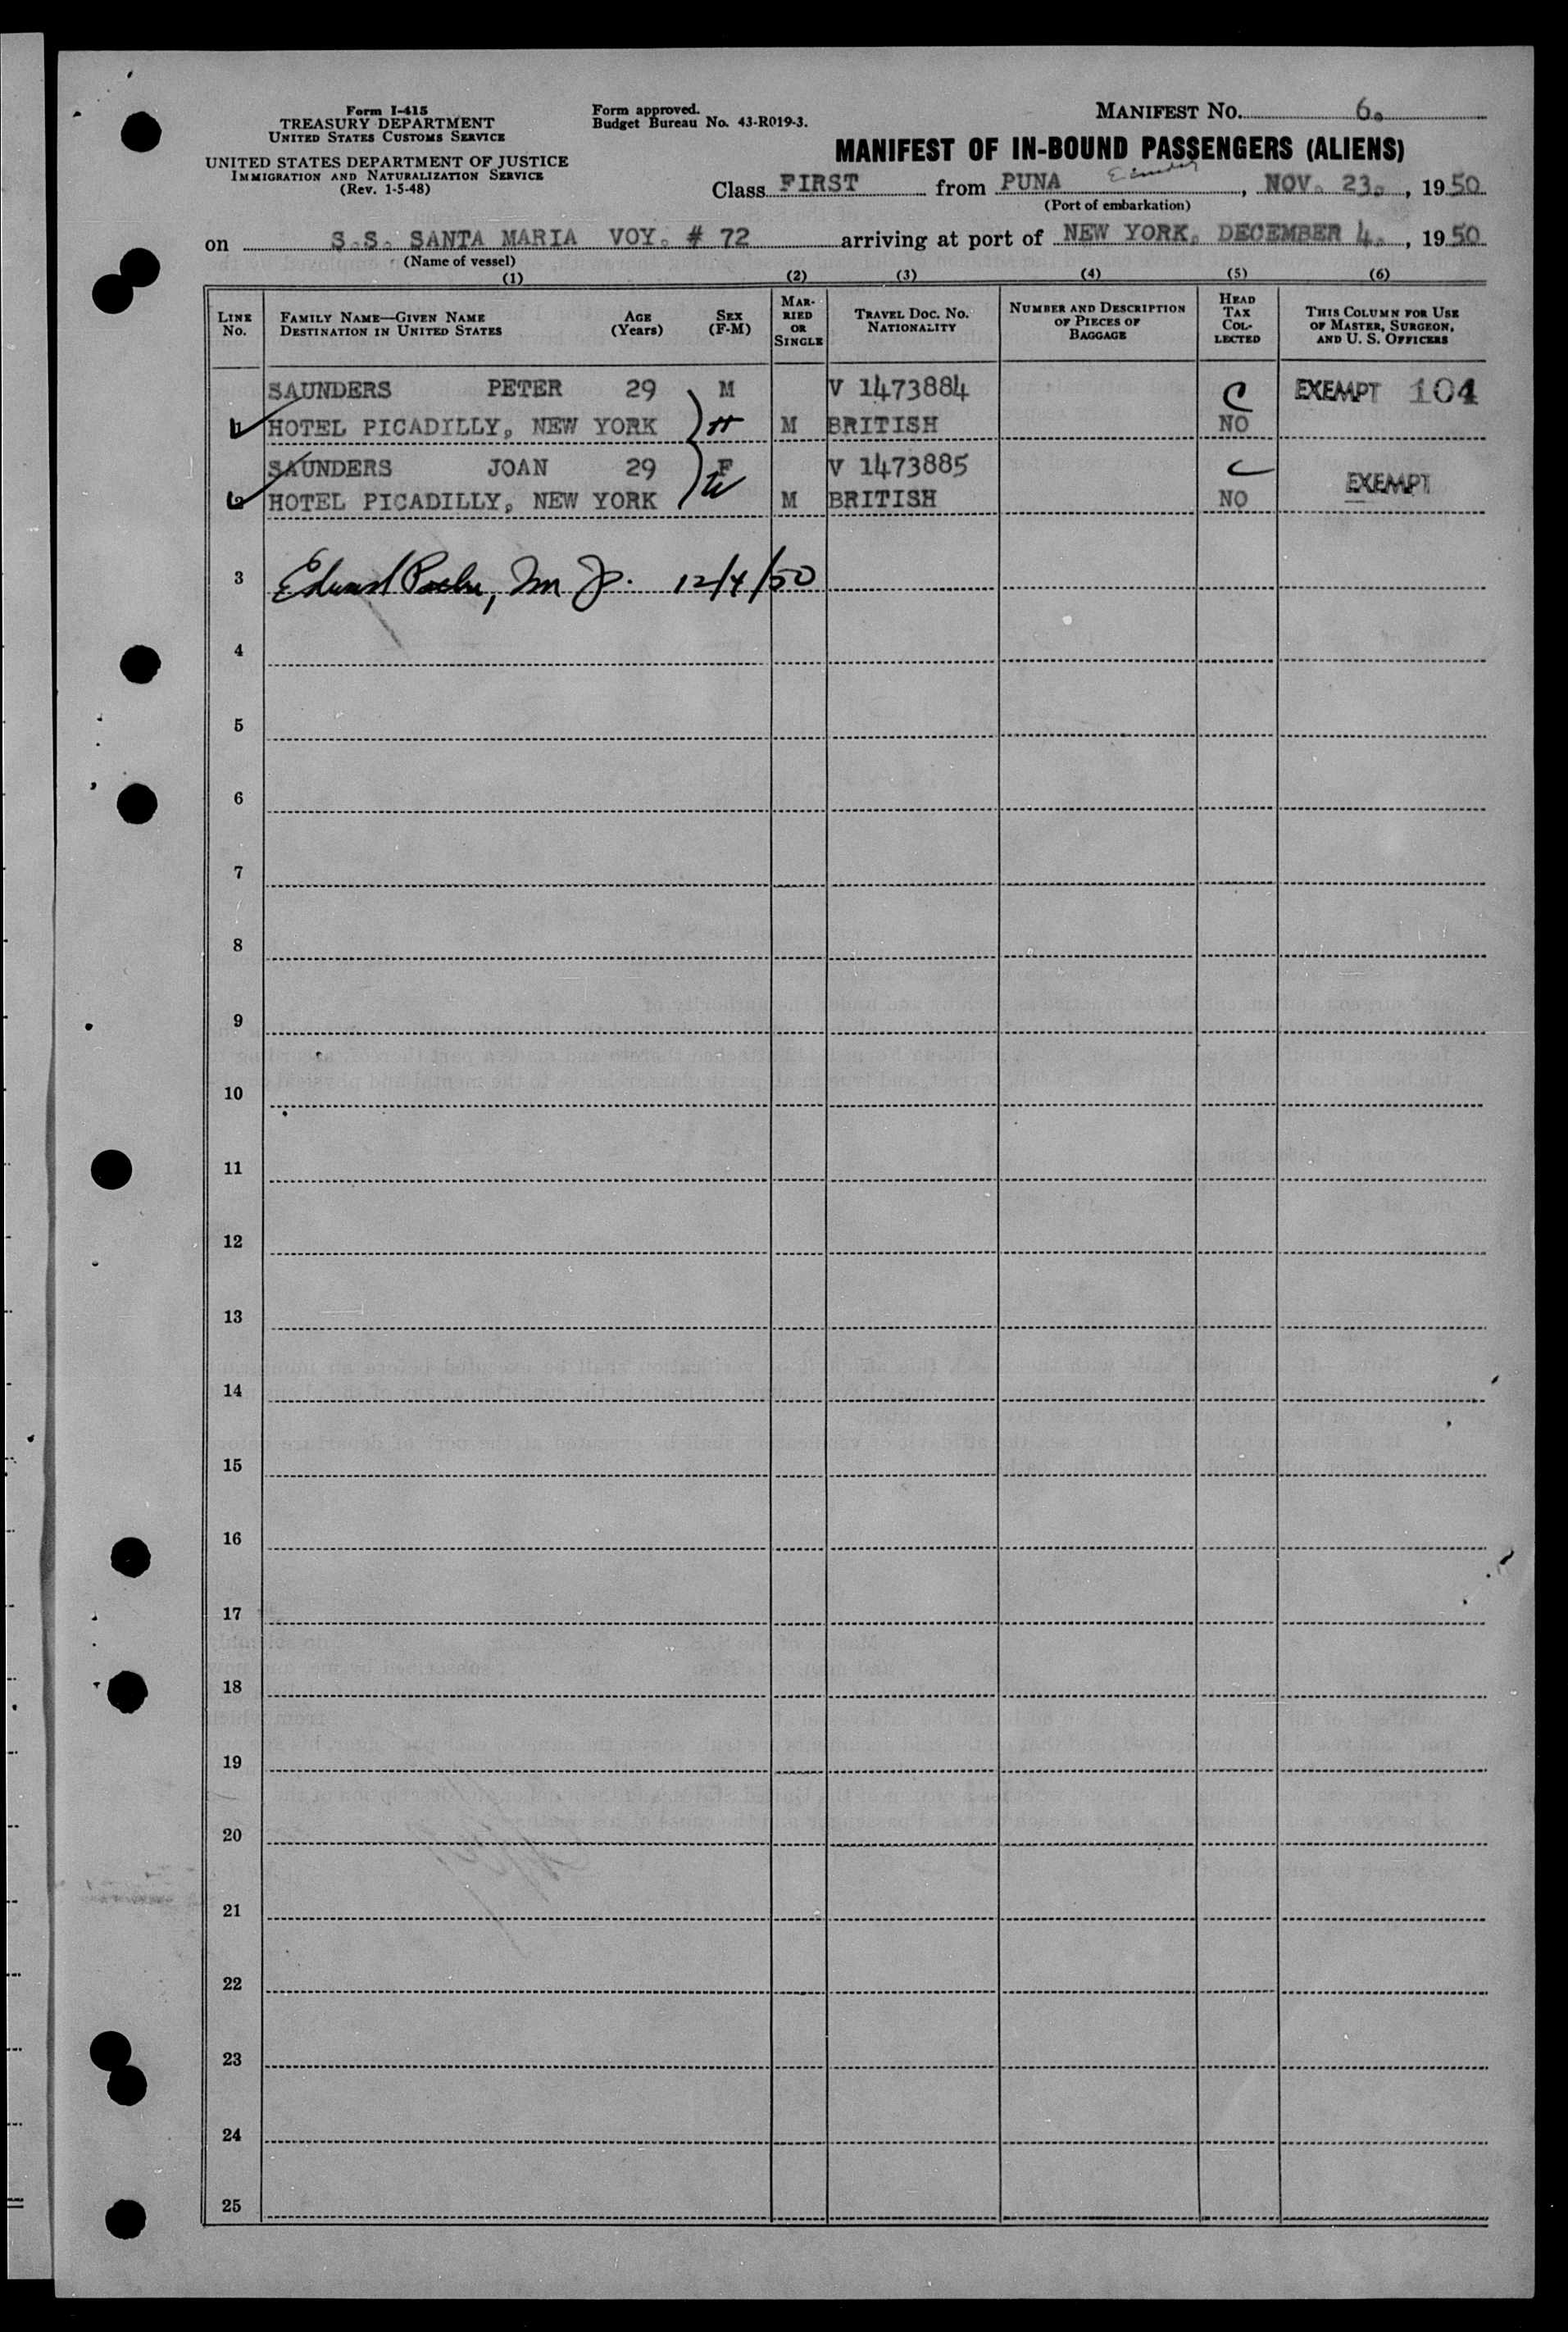 Form I-415
TREASURY DEPARTMENT
UNITED STATES CUSTOMS SERVICE
UNITED STATES DEPARTMENT OF JUSTICE
IMMIGRATION AND NATURALIZATION SERVICE
(Rev. 1-5-48)
Form approved.
Budget Bureau No. 43-R019-3.
MANIFEST NO. 6.
MANIFEST OF IN-BOUND PASSENGERS (ALIENS)
Class FIRST from PUNA, NOV. 23., 1950
(Port of embarkation)
on S.S. SANTA MARIA VOY. # 72 arriving at port of NEW YORK, DECEMBER 4., 1950
(Name of vessel)
(1) (2) (3) (4) (5) (6)
LINE No. FAMILY NAME—GIVEN NAME DESTINATION IN UNITED STATES AGE (Years) SEX (F-M) MARRIED OR SINGLE TRAVEL DOC. NO. NATIONALITY NUMBER AND DESCRIPTION OF PIECES OF BAGGAGE HEAD TAX COLLECTED THIS COLUMN FOR USE OF MASTER, SURGEON, AND U. S. OFFICERS
SAUNDERS PETER 29 M V 1473884 C EXEMPT 104
HOTEL PICADILLY, NEW YORK H M BRITISH NO
SAUNDERS JOAN 29 F V 1473885 C EXEMPT
HOTEL PICADILLY, NEW YORK W M BRITISH NO
3 Edward 12/4/50
4
5
6
7
8
9
10
11
12
13
14
15
16
17
18
19
20
21
22
23
24
25